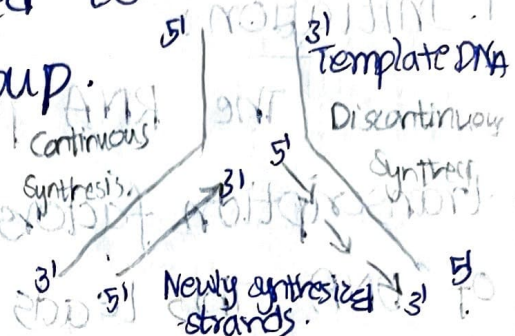 5' 3'
Template DNA
up.
Continuous
Synthesis.
Discontinuous
5'
3'
3'
5'
5'
Newly synthesized 3'
strands.